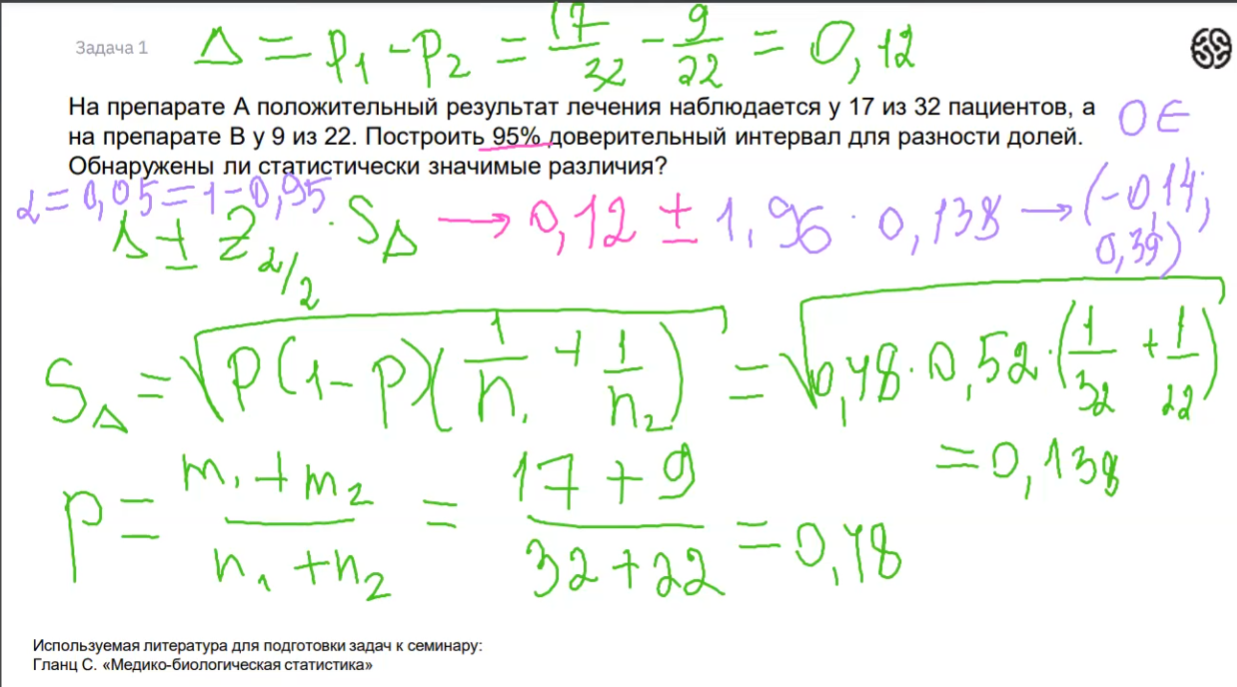 Задача 1
Δ = p₁ - p₂ = 17/32 - 9/22 = 0,12
На препарате А положительный результат лечения наблюдается у 17 из 32 пациентов, а
на препарате В у 9 из 22. Построить 95% доверительный интервал для разности долей.
Обнаружены ли статистически значимые различия?
0 ∈
α = 0,05 = 1 - 0,95
Δ ± Z α/2 · S_Δ → 0,12 ± 1,96 · 0,138 → (-0,14;
0,39)
S_Δ = √(p(1-p)(1/n₁ + 1/n₂)) = √(0,48 · 0,52 · (1/32 + 1/22))
= 0,138
p = (m₁ + m₂)/(n₁ + n₂) = (17 + 9)/(32 + 22) = 0,48
Используемая литература для подготовки задач к семинару:
Гланц С. «Медико-биологическая статистика»